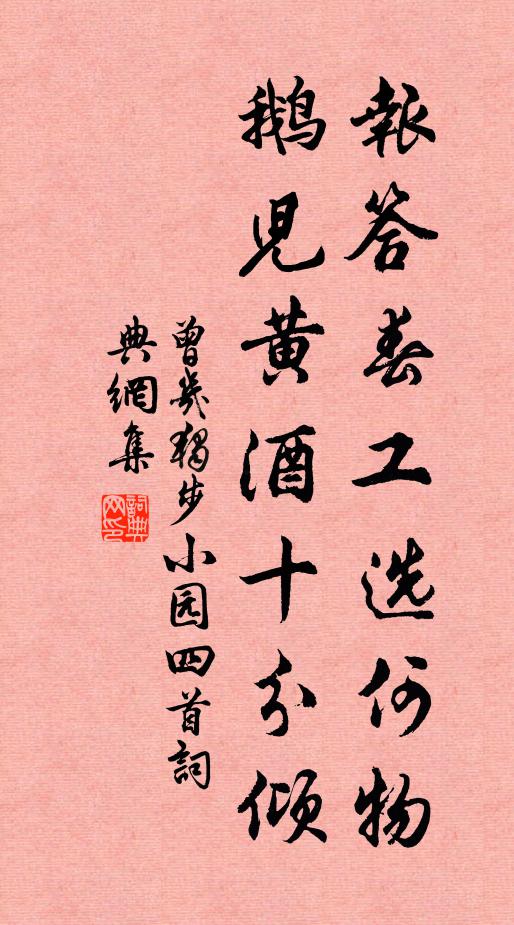 報答春工选何物
鹅児黄酒十分倾
曾几獨步小园四首詞
典網集
詞典网印